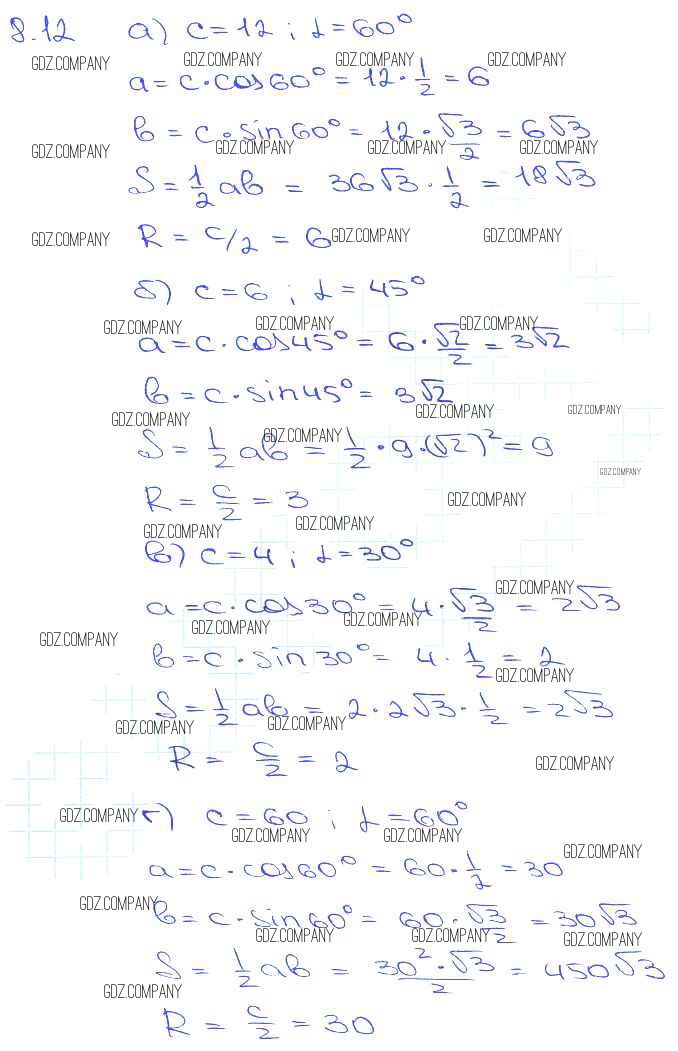 8.12 а) c = 12 ; α = 60°
GDZ.COMPANY GDZ.COMPANY GDZ.COMPANY GDZ.COMPANY
a = c · cos 60° = 12 · 1/2 = 6
b = c · sin 60° = 12 · √3/2 = 6√3
GDZ.COMPANY GDZ.COMPANY GDZ.COMPANY GDZ.COMPANY
S = 1/2 ab = 36√3 · 1/2 = 18√3
R = c/2 = 6
GDZ.COMPANY GDZ.COMPANY GDZ.COMPANY
б) c = 6 ; α = 45°
GDZ.COMPANY GDZ.COMPANY GDZ.COMPANY
a = c · cos 45° = 6 · √2/2 = 3√2
b = c · sin 45° = 3√2
GDZ.COMPANY GDZ.COMPANY GDZ.COMPANY
GDZ.COMPANY
S = 1/2 ab = 1/2 · 9 · (√2)² = 9
GDZ.COMPANY
R = c/2 = 3
GDZ.COMPANY
GDZ.COMPANY GDZ.COMPANY
в) c = 4 ; α = 30°
GDZ.COMPANY
a = c · cos 30° = 4 · √3/2 = 2√3
GDZ.COMPANY GDZ.COMPANY GDZ.COMPANY
b = c · sin 30° = 4 · 1/2 = 2
GDZ.COMPANY
S = 1/2 ab = 2 · 2√3 · 1/2 = 2√3
GDZ.COMPANY GDZ.COMPANY
R = c/2 = 2
GDZ.COMPANY
GDZ.COMPANY
г) c = 60 ; α = 60°
GDZ.COMPANY GDZ.COMPANY GDZ.COMPANY
a = c · cos 60° = 60 · 1/2 = 30
GDZ.COMPANY
b = c · sin 60° = 60 · √3/2 = 30√3
GDZ.COMPANY GDZ.COMPANY GDZ.COMPANY
S = 1/2 ab = 30² · √3/2 = 450√3
GDZ.COMPANY
R = c/2 = 30